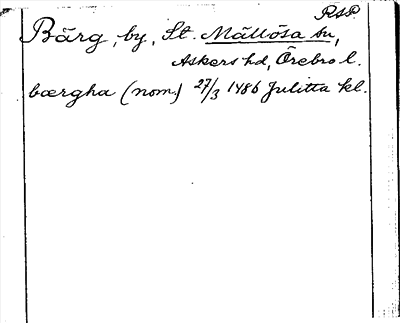 RSP.
Bärg, by, St. Mällösa sn,
Askers hd, Örebro l.
bærgha (nom.) 27/3 1486 Julitta kl.